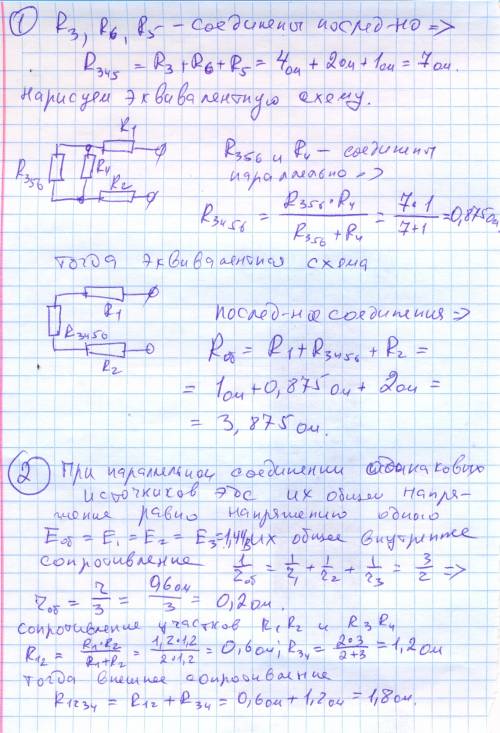 1 R3, R6, R5 – соединены послед-но =>
R345 = R3 + R6 + R5 = 4ом + 2ом + 1ом = 7ом.
Нарисуем эквивалентную схему.
R1
R356
R4
R2
R356 и R4 – соедины
параллельно =>
R3456 = R356 · R4 / R356 + R4 = 7·1 / 7+1 = 0,875ом
тогда эквивалентная схема
R1
R3456
R2
послед-ное соединения =>
Rоб = R1 + R3456 + R2 =
= 1ом + 0,875ом + 2ом =
= 3,875ом.
2 При параллельном соединении одинаковых
источников эдс их общее напря-
жение равно напряжению одного
Eоб = E1 = E2 = E3 = 1,4В их общее внутренне
сопротивление 1/rоб = 1/r1 + 1/r2 + 1/r3 = 3/r =>
rоб = r/3 = 0,6ом/3 = 0,2ом.
Сопротивление участков R1 R2 и R3 R4
R12 = R1·R2 / R1+R2 = 1,2·1,2 / 2·1,2 = 0,6ом; R34 = 2·3 / 2+3 = 1,2ом
тогда внешнее сопротивление
R1234 = R12 + R34 = 0,6ом + 1,2ом = 1,8ом.